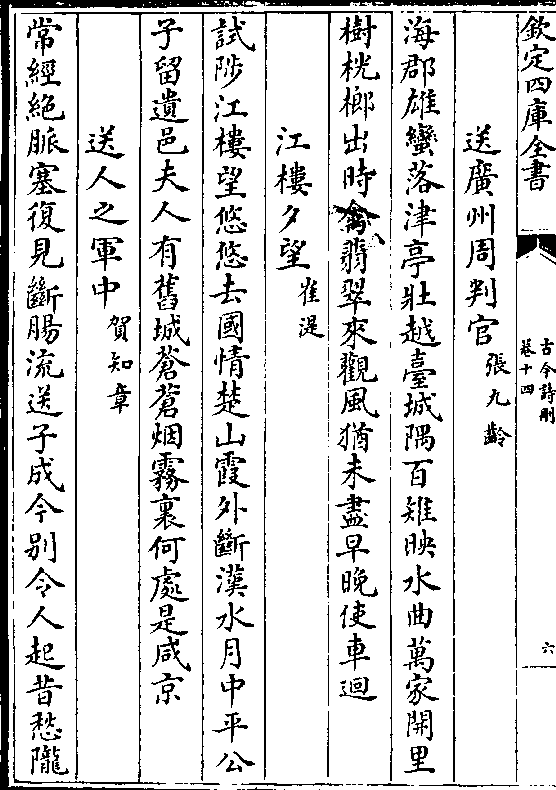 欽定四庫全書
古今詩刪
卷十四
六
送廣州周判官 張九齡
海郡雄蠻落津亭壯越臺城隅百雉映水曲萬家開里
樹桄榔出時禽翡翠來觀風猶未盡早晚使車廻
江樓夕望 崔湜
試陟江樓望悠悠去國情楚山霞外斷漢水月中平公
子留遺邑夫人有舊城蒼蒼烟霧裏何處是咸京
送人之軍中 賀知章
常經絶脈塞復見斷腸流送子成今别令人起昔愁隴